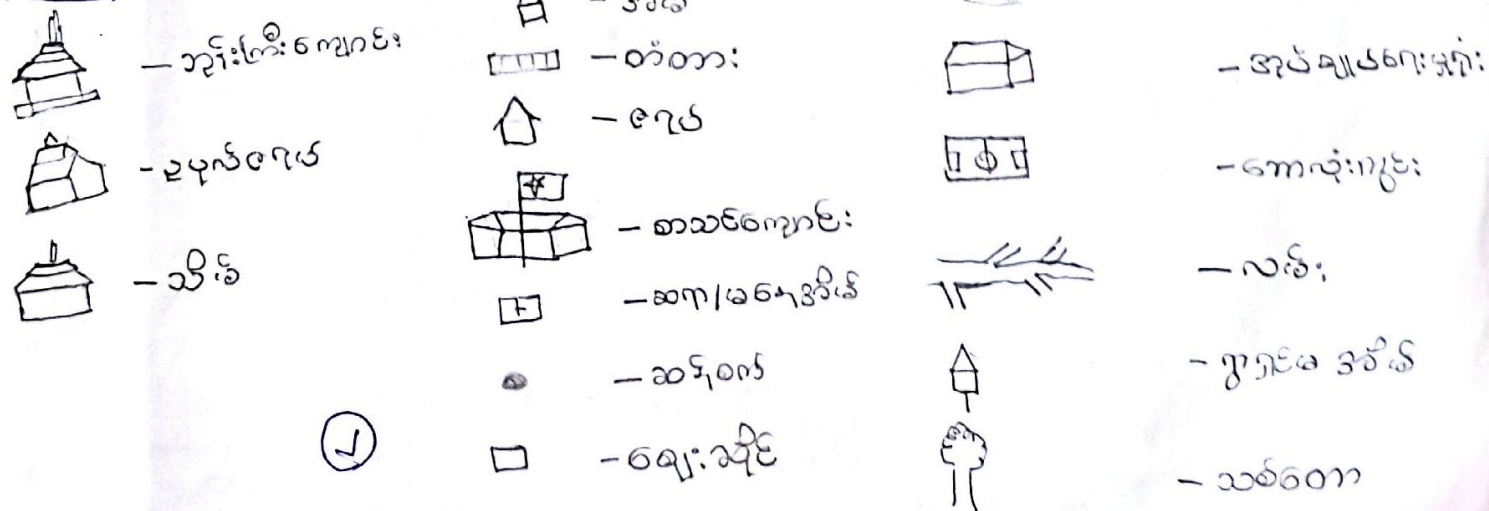 - ဘုန်းကြီးကျောင်း
- ဥပုသ်ဇရပ်
- သိမ်
- အိမ်
- တံတား
- ဇရပ်
- စာသင်ကျောင်း
- ဆရာ/မနေအိမ်
- ဆန်စက်
- ဈေးဆိုင်
- အုပ်ချုပ်ရေးမှူးရုံး
- ဘောလုံးကွင်း
- လမ်း
- နတ်အိမ်
- သစ်တော